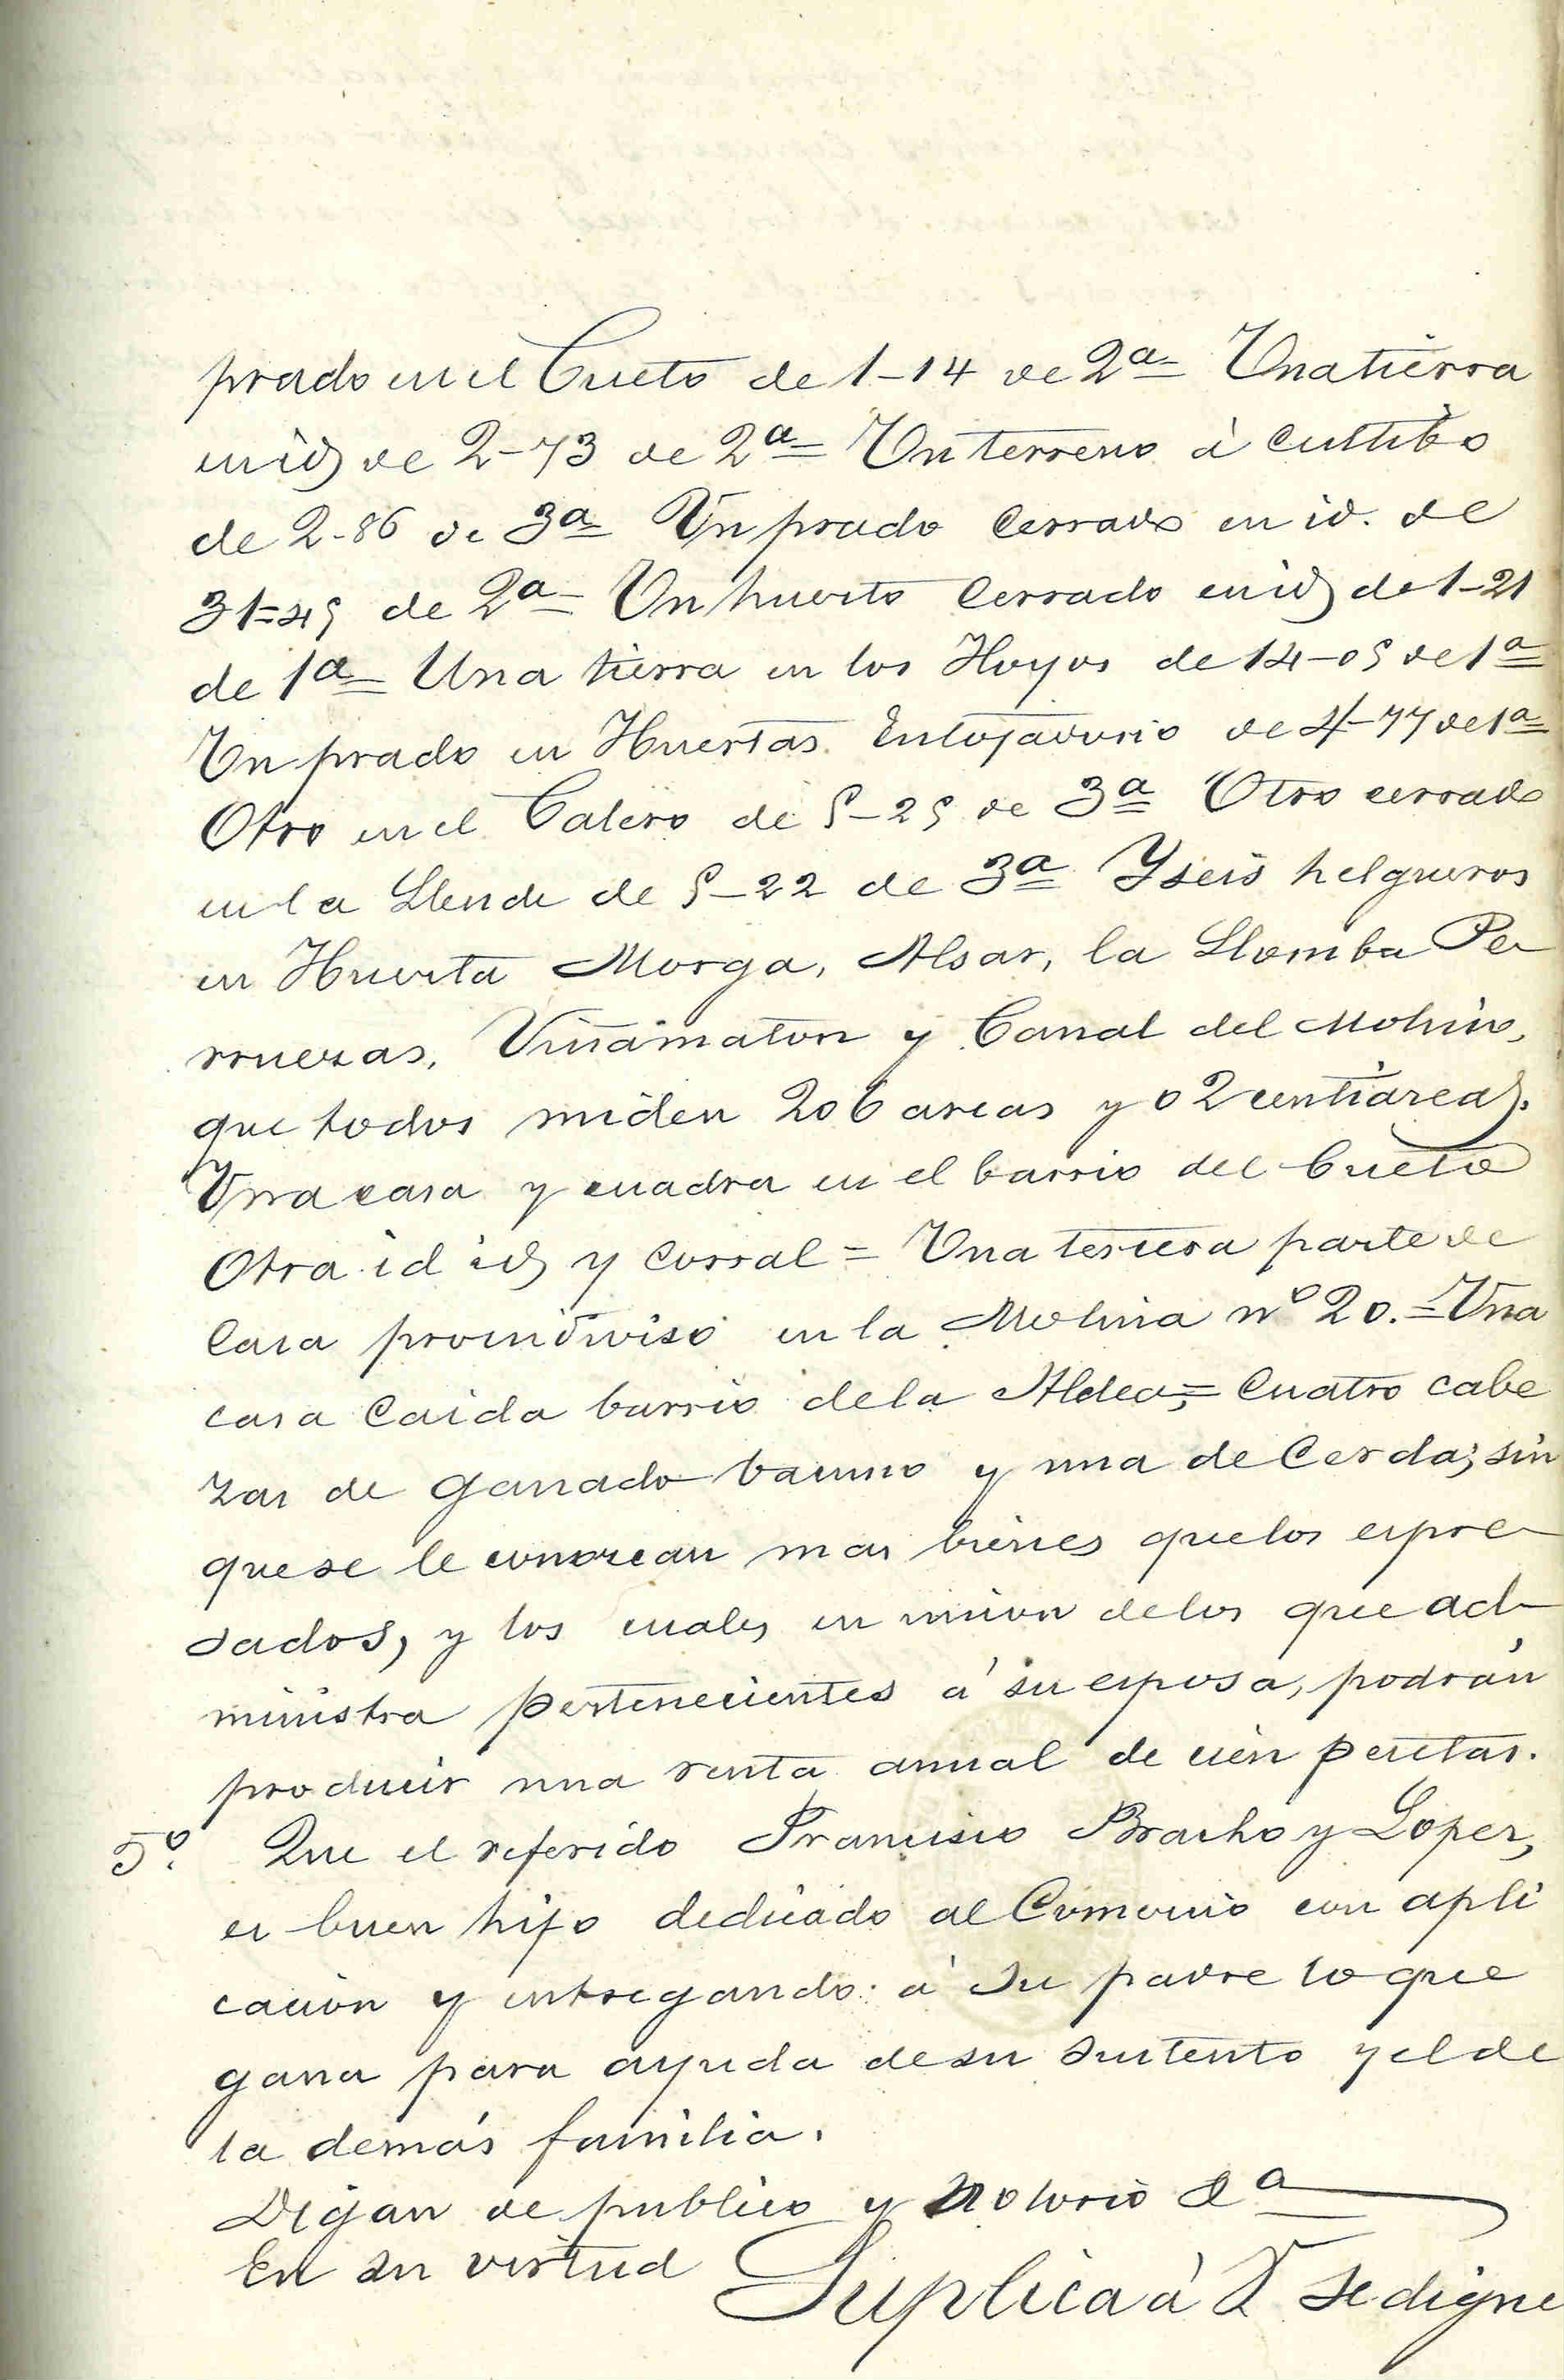 prado en el Cueto de 1-14 de 2ª Una tierra
en id de 2-73 de 2ª Un terreno á cultibo
de 2-86 de 3ª Un prado cerrado en id. de
31=45 de 2ª Un huerto cerrado en id de 1-21
de 1ª Una tierra en los Hoyos de 14-05 de 1ª
Un prado en Huertas de 4-77 de 1ª
Otro en el Calero de 5-25 de 3ª Otro cerrado
en la Llende de 5-22 de 3ª Y seis helgueros
en Huerta Morga, Alsar, la Llomba Pe
rruezas, Viñamaton y Canal del Molino,
que todos miden 206 areas y 02 centiareas.
Una casa y cuadra en el barrio del Cueto
Otra id id y corral = Una tercera parte de
casa proindiviso en la Molina nº 20. = Una
casa caida barrio de la Aldea; = Cuatro cabe
zas de ganado bacuno y una de Cerda; sin
que se le conozcan mas bienes que los espre
sados, y los cuales en union de los que ad-
ministra pertenecientes á su esposa, podrán
producir una renta anual de cien pesetas.
5º. Que el referido Francisco Bracho y Lopez,
es buen hijo dedicado al Comercio con apli
cacion y entregando á su padre lo que
gana para ayuda de su sustento y el de
la demás familia.
Digan de publico y notorio &ª
En su virtud Suplica á V se digne